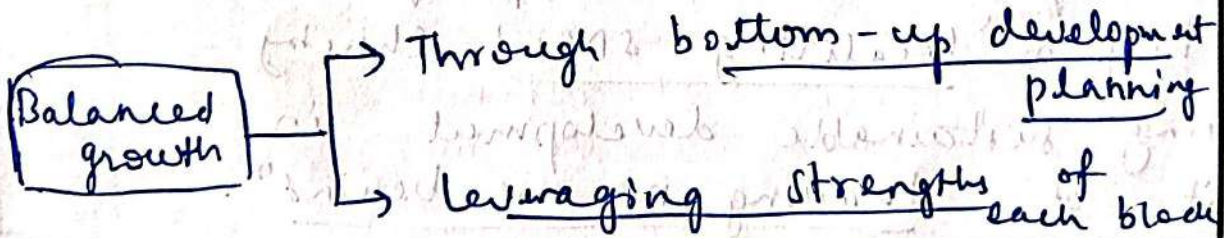 Balanced
growth
Through bottom-up development
planning
leveraging strengths of
each block